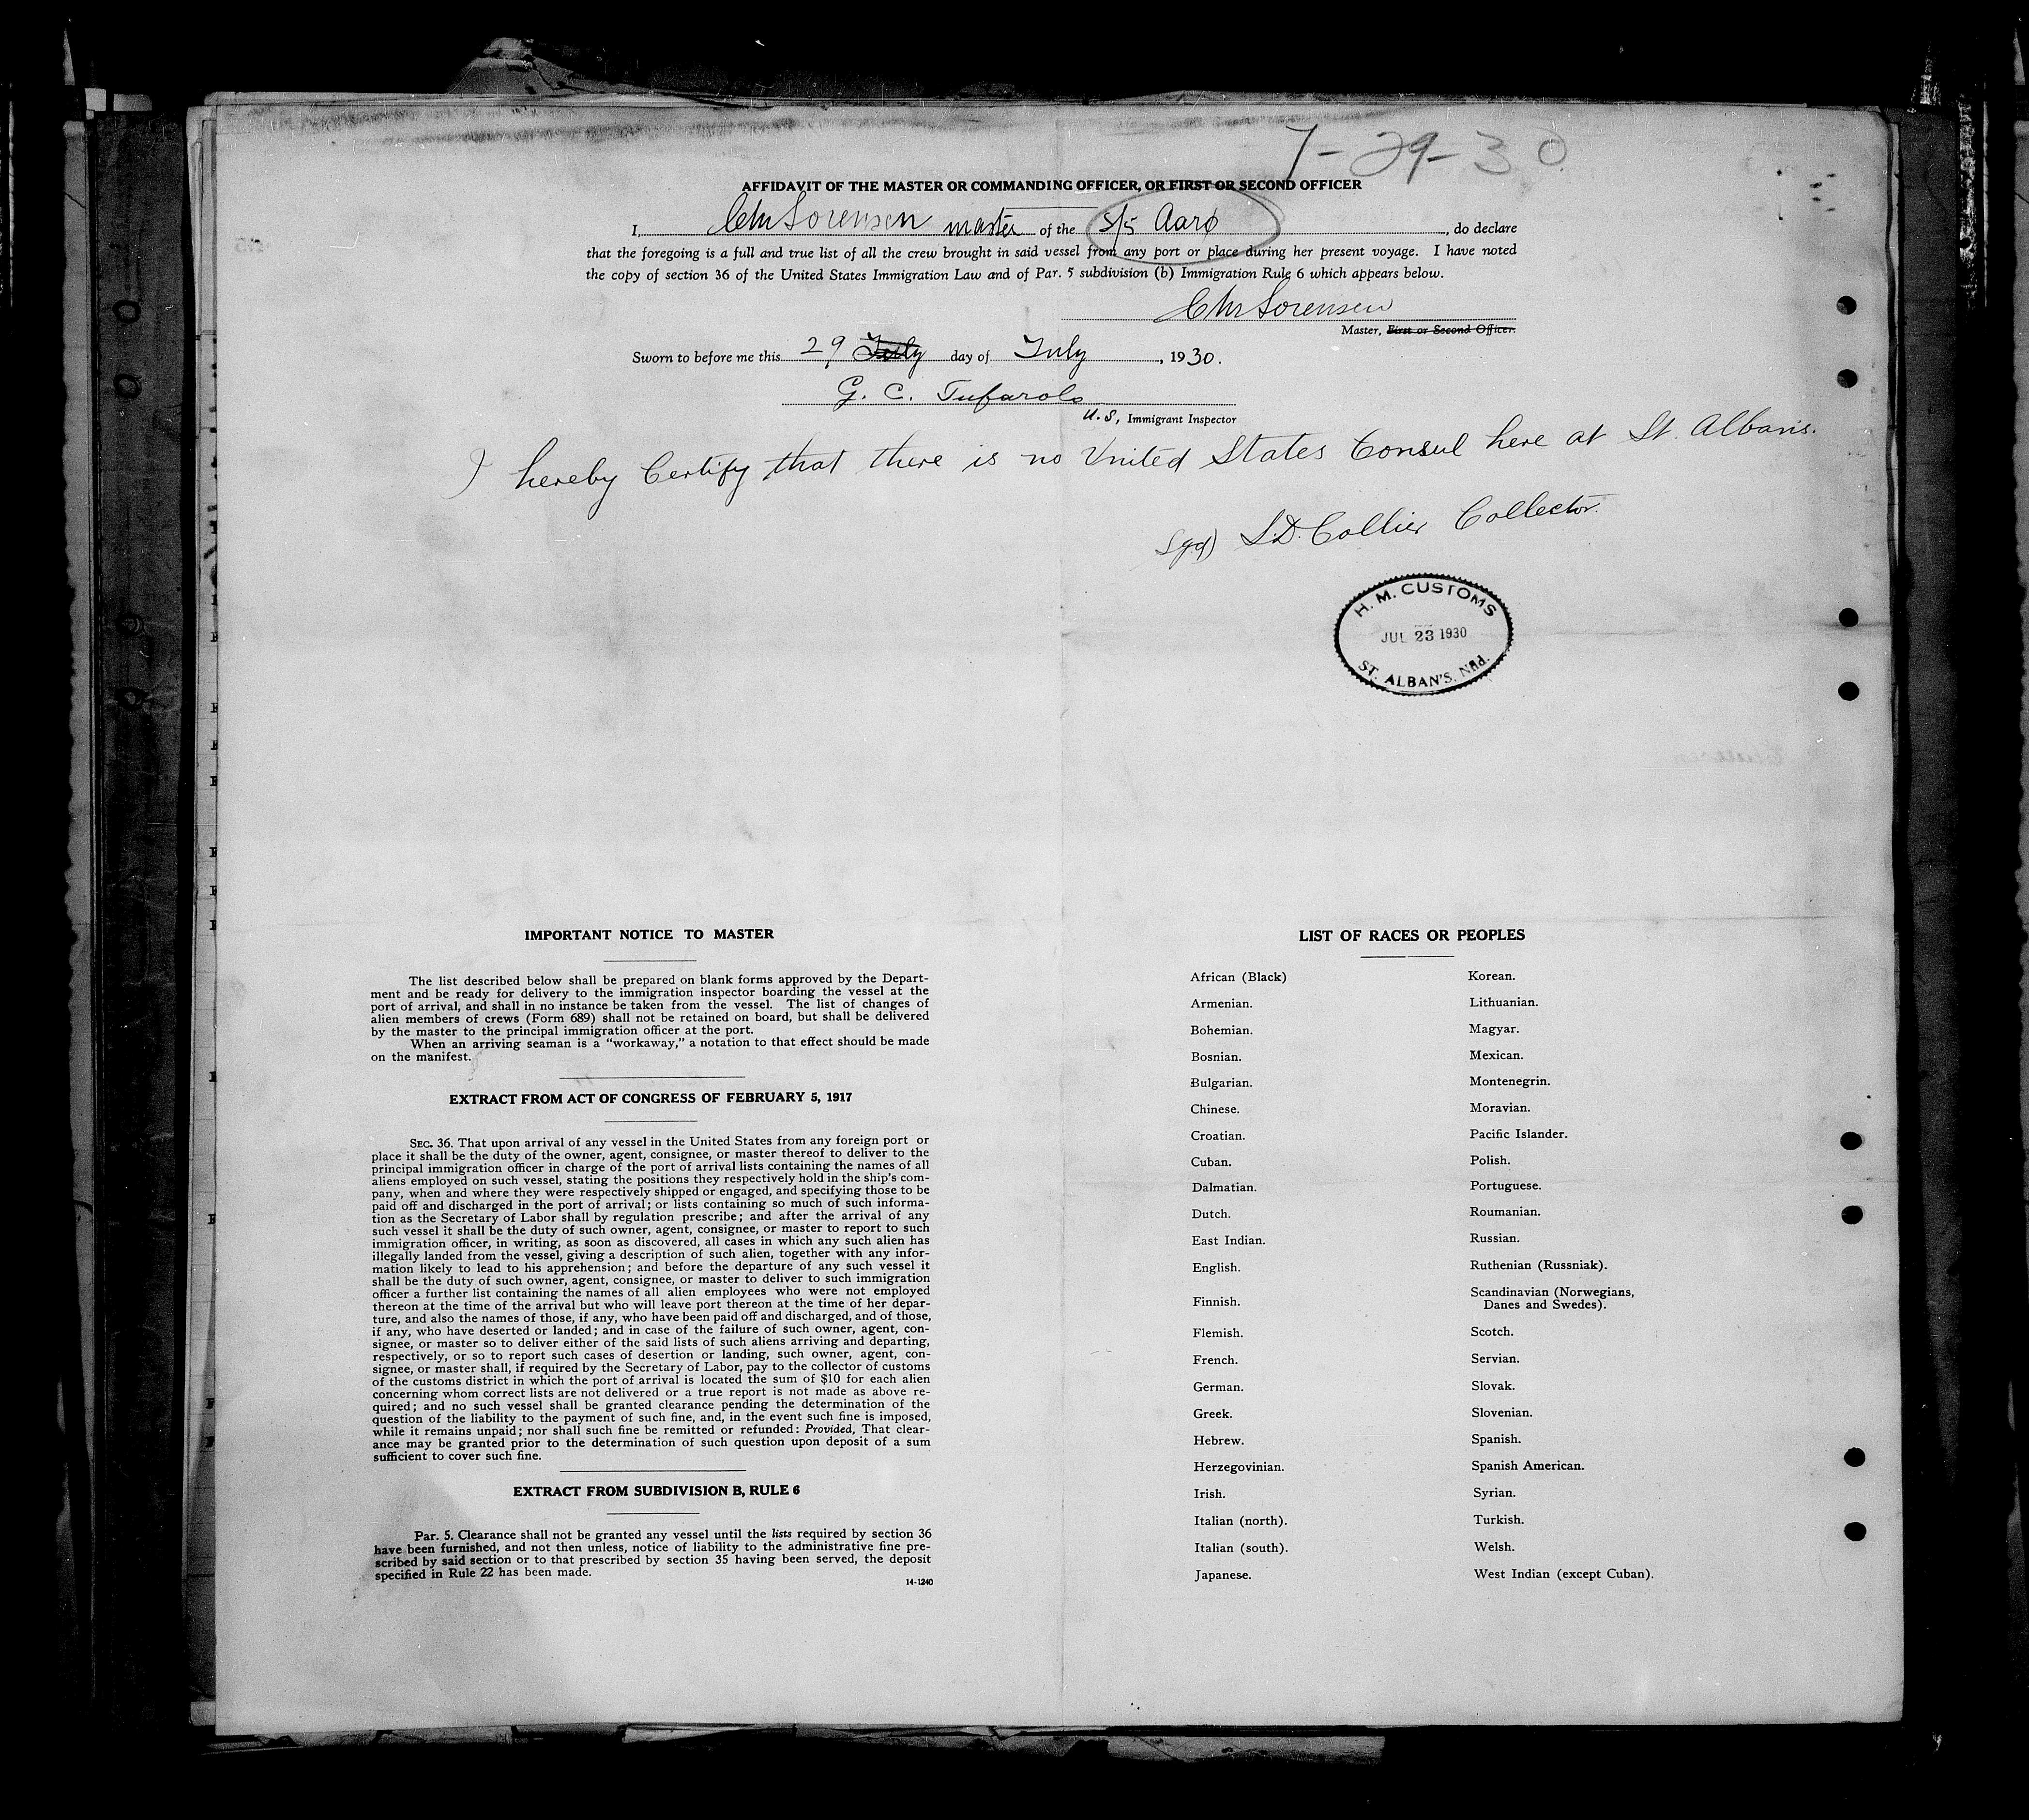 7-29-30
AFFIDAVIT OF THE MASTER OR COMMANDING OFFICER, OR FIRST OR SECOND OFFICER
I, Chr Sorensen master of the S/S Aarø, do declare
that the foregoing is a full and true list of all the crew brought in said vessel from any port or place during her present voyage. I have noted
the copy of section 36 of the United States Immigration Law and of Par. 5 subdivision (b) Immigration Rule 6 which appears below.
Chr Sorensen
Master, First or Second Officer.
Sworn to before me this 29 July day of July, 1930.
G. C. Tufarolo
U.S, Immigrant Inspector
I hereby Certify that there is no United States Consul here at St. Albans.
Sgd) S.D. Collier Collector.
H. M. CUSTOMS
JUL 23 1930
ST. ALBAN'S. Nfld.
IMPORTANT NOTICE TO MASTER
The list described below shall be prepared on blank forms approved by the Depart-
ment and be ready for delivery to the immigration inspector boarding the vessel at the
port of arrival, and shall in no instance be taken from the vessel. The list of changes of
alien members of crews (Form 689) shall not be retained on board, but shall be delivered
by the master to the principal immigration officer at the port.
When an arriving seaman is a “workaway,” a notation to that effect should be made
on the manifest.
EXTRACT FROM ACT OF CONGRESS OF FEBRUARY 5, 1917
SEC. 36. That upon arrival of any vessel in the United States from any foreign port or
place it shall be the duty of the owner, agent, consignee, or master thereof to deliver to the
principal immigration officer in charge of the port of arrival lists containing the names of all
aliens employed on such vessel, stating the positions they respectively hold in the ship's com-
pany, when and where they were respectively shipped or engaged, and specifying those to be
paid off and discharged in the port of arrival; or lists containing so much of such informa-
tion as the Secretary of Labor shall by regulation prescribe; and after the arrival of any
such vessel it shall be the duty of such owner, agent, consignee, or master to report to such
immigration officer, in writing, as soon as discovered, all cases in which any such alien has
illegally landed from the vessel, giving a description of such alien, together with any infor-
mation likely to lead to his apprehension; and before the departure of any such vessel it
shall be the duty of such owner, agent, consignee, or master to deliver to such immigration
officer a further list containing the names of all alien employees who were not employed
thereon at the time of the arrival but who will leave port thereon at the time of her depar-
ture, and also the names of those, if any, who have been paid off and discharged, and of those,
if any, who have deserted or landed; and in case of the failure of such owner, agent, con-
signee, or master so to deliver either of the said lists of such aliens arriving and departing,
respectively, or so to report such cases of desertion or landing, such owner, agent, con-
signee, or master shall, if required by the Secretary of Labor, pay to the collector of customs
of the customs district in which the port of arrival is located the sum of $10 for each alien
concerning whom correct lists are not delivered or a true report is not made as above re-
quired; and no such vessel shall be granted clearance pending the determination of the
question of the liability to the payment of such fine, and, in the event such fine is imposed,
while it remains unpaid; nor shall such fine be remitted or refunded: Provided, That clear-
ance may be granted prior to the determination of such question upon deposit of a sum
sufficient to cover such fine.
EXTRACT FROM SUBDIVISION B, RULE 6
Par. 5. Clearance shall not be granted any vessel until the lists required by section 36
have been furnished, and not then unless, notice of liability to the administrative fine pre-
scribed by said section or to that prescribed by section 35 having been served, the deposit
specified in Rule 22 has been made.
14-1240
LIST OF RACES OR PEOPLES
African (Black)
Armenian.
Bohemian.
Bosnian.
Bulgarian.
Chinese.
Croatian.
Cuban.
Dalmatian.
Dutch.
East Indian.
English.
Finnish.
Flemish.
French.
German.
Greek.
Hebrew.
Herzegovinian.
Irish.
Italian (north).
Italian (south).
Japanese.
Korean.
Lithuanian.
Magyar.
Mexican.
Montenegrin.
Moravian.
Pacific Islander.
Polish.
Portuguese.
Roumanian.
Russian.
Ruthenian (Russniak).
Scandinavian (Norwegians,
Danes and Swedes).
Scotch.
Servian.
Slovak.
Slovenian.
Spanish.
Spanish American.
Syrian.
Turkish.
Welsh.
West Indian (except Cuban).